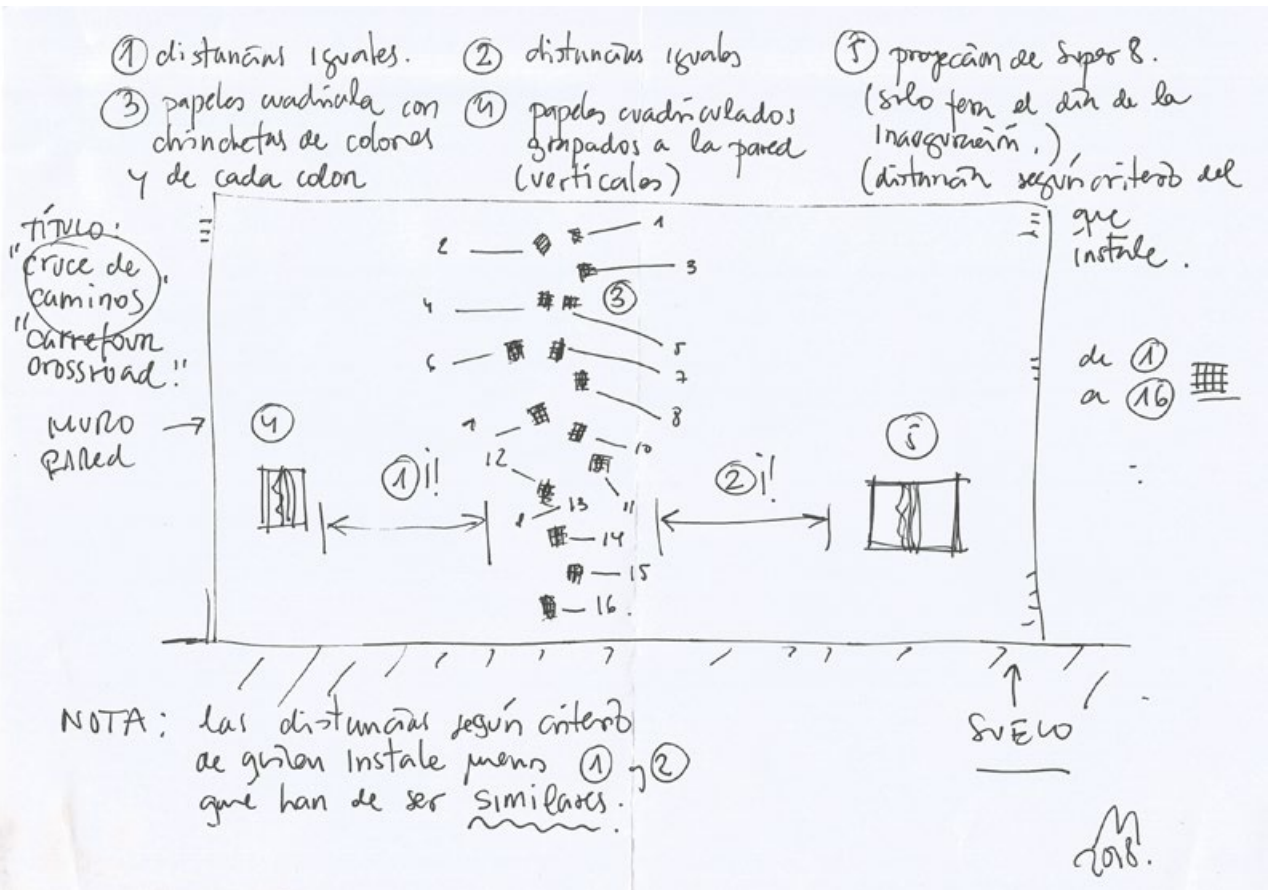 ① distancias iguales.
② distancias iguales
⑤ proyección de Super 8.
(sólo el día de la
inauguración.)
(distancia según criterio del
que
instale.
③ papeles cuadrícula con
chinchetas de colores
y de cada color
④ papeles cuadriculados
grapados a la pared
(verticales)
TÍTULO:
"cruce de
caminos"
"carrefour
crossroad."
MURO
PARED
1
2
3
③
4
5
6
7
8
10
12
11
13
14
15
16.
④
①¡!
②¡!
⑤
de ①
a ⑯
SUELO
NOTA: las distancias según criterio
de quien instale menos ① y ②
que han de ser similares.
2018.